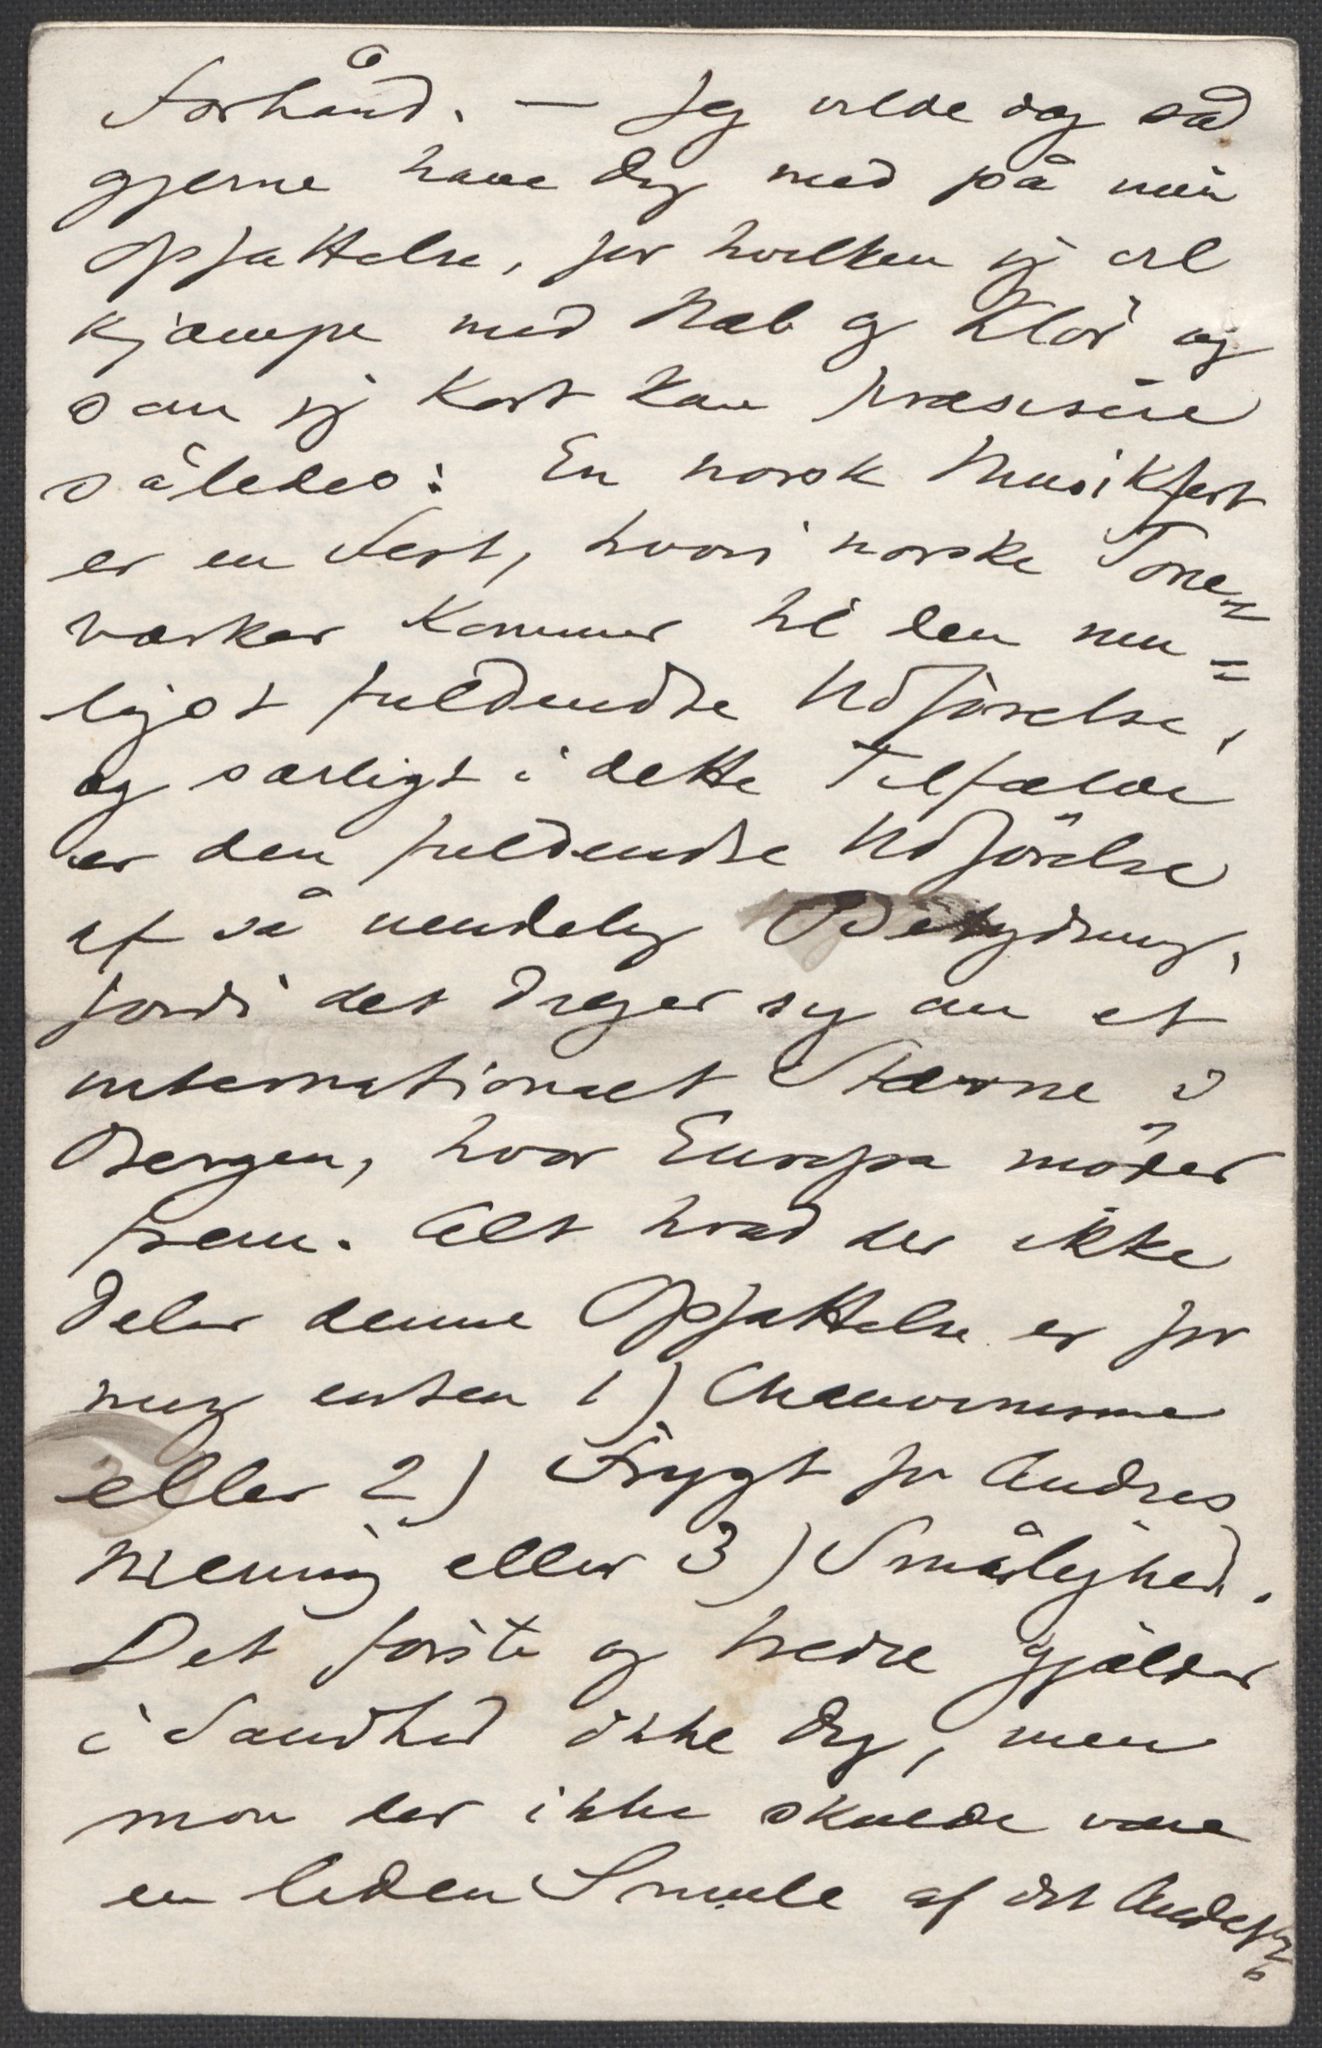 Forhånd. — Jeg vilde dog så
gjerne have Dig med på min
Opfattelse, for hvilken jeg vil
kjæmpe med Næb og Klør og
som jeg kort kan præsisere
således: En norsk Musikfest
er en Fest, hvori norske Tone=
værker kommer til den mu=
ligst fuldendte Udførelse,
og særligt i dette Tilfælde
er den fuldendte Udførelse
af så uendelig Betydning,
fordi det drejer sig om et
internationalt Stævne i
Bergen, hvor Europa møder
frem. Alt hvad der ikke
deler denne Opfattelse er for
mig enten 1) Chauvinisme
eller 2) Frygt for Andres
Mening eller 3) Smålighed.
Det første og tredie gjælder
i Sandhed ikke Dig, men
mon der ikke skulde være
en liden Smule af det Andet?